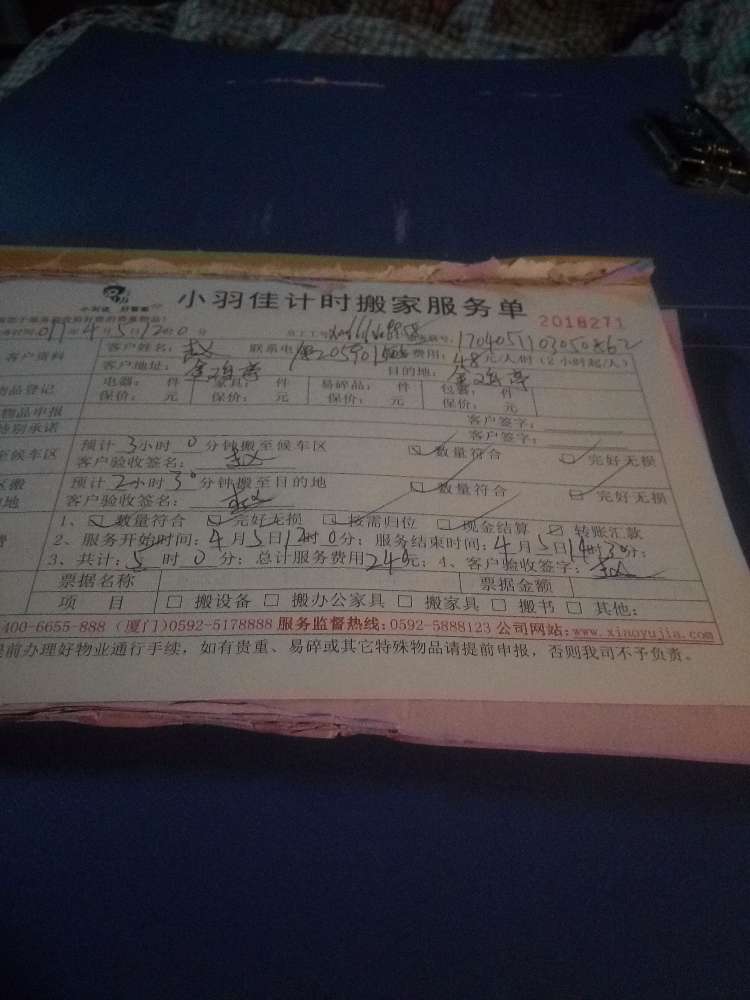 小羽佳 好管家
小羽佳计时搬家服务单
2018271
年4月5日12时0分
170405110305086
客户资料 客户姓名： 联系电 费用：48元/人/时（2小时起/人）
客户地址： 目的地：
物品登记 电器： 件 家具： 件 易碎品： 件 包裹： 件
保价： 元 保价： 元 保价： 元 保价： 元
物品申报 客户签字：
特别承诺 客户签字：
至候车区 预计3小时0分钟搬至候车区 数量符合 完好无损
客户验收签名：
区搬 预计2小时30分钟搬至目的地 数量符合 完好无损
的地 客户验收签名：
1、 数量符合 完好无损 按需归位 现金结算 转账汇款
2、服务开始时间：4月5日12时0分；服务结束时间：4月5日14时30分；
费 3、共计：5时0分；总计服务费用240元；4、客户验收签字：
票据名称 票据金额
项 目 □ 搬设备 □ 搬办公家具 □ 搬家具 □ 搬书 □ 其他：
400-6655-888（厦门）0592-5178888 服务监督热线：0592-5888123 公司网站：www.xiaoyujia.com
提前办理好物业通行手续，如有贵重、易碎或其它特殊物品请提前申报，否则我司不予负责。